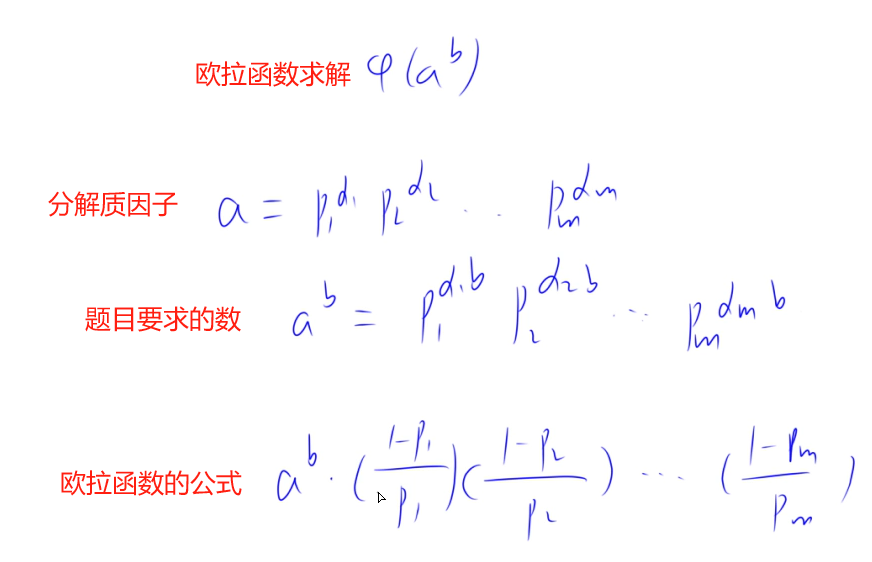 欧拉函数求解 φ(a^b)
分解质因子 a = p₁^α₁ p₂^α₂ ... pₘ^αₘ
题目要求的数 a^b = p₁^α₁b p₂^α₂b ... pₘ^αₘb
欧拉函数的公式 a^b · (1-p₁/p₁)(1-p₂/p₂) ... (1-pₘ/pₘ)